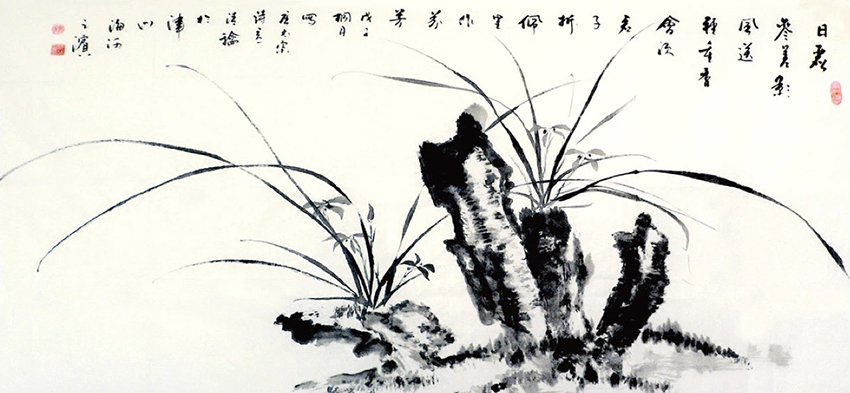 日麗
參差影
風送
輕重香
會須
君
子
折
佩
里
作
芬
芳
戊子
桐月
寫
唐太宗
詩意
於
津
門
海河
之濱